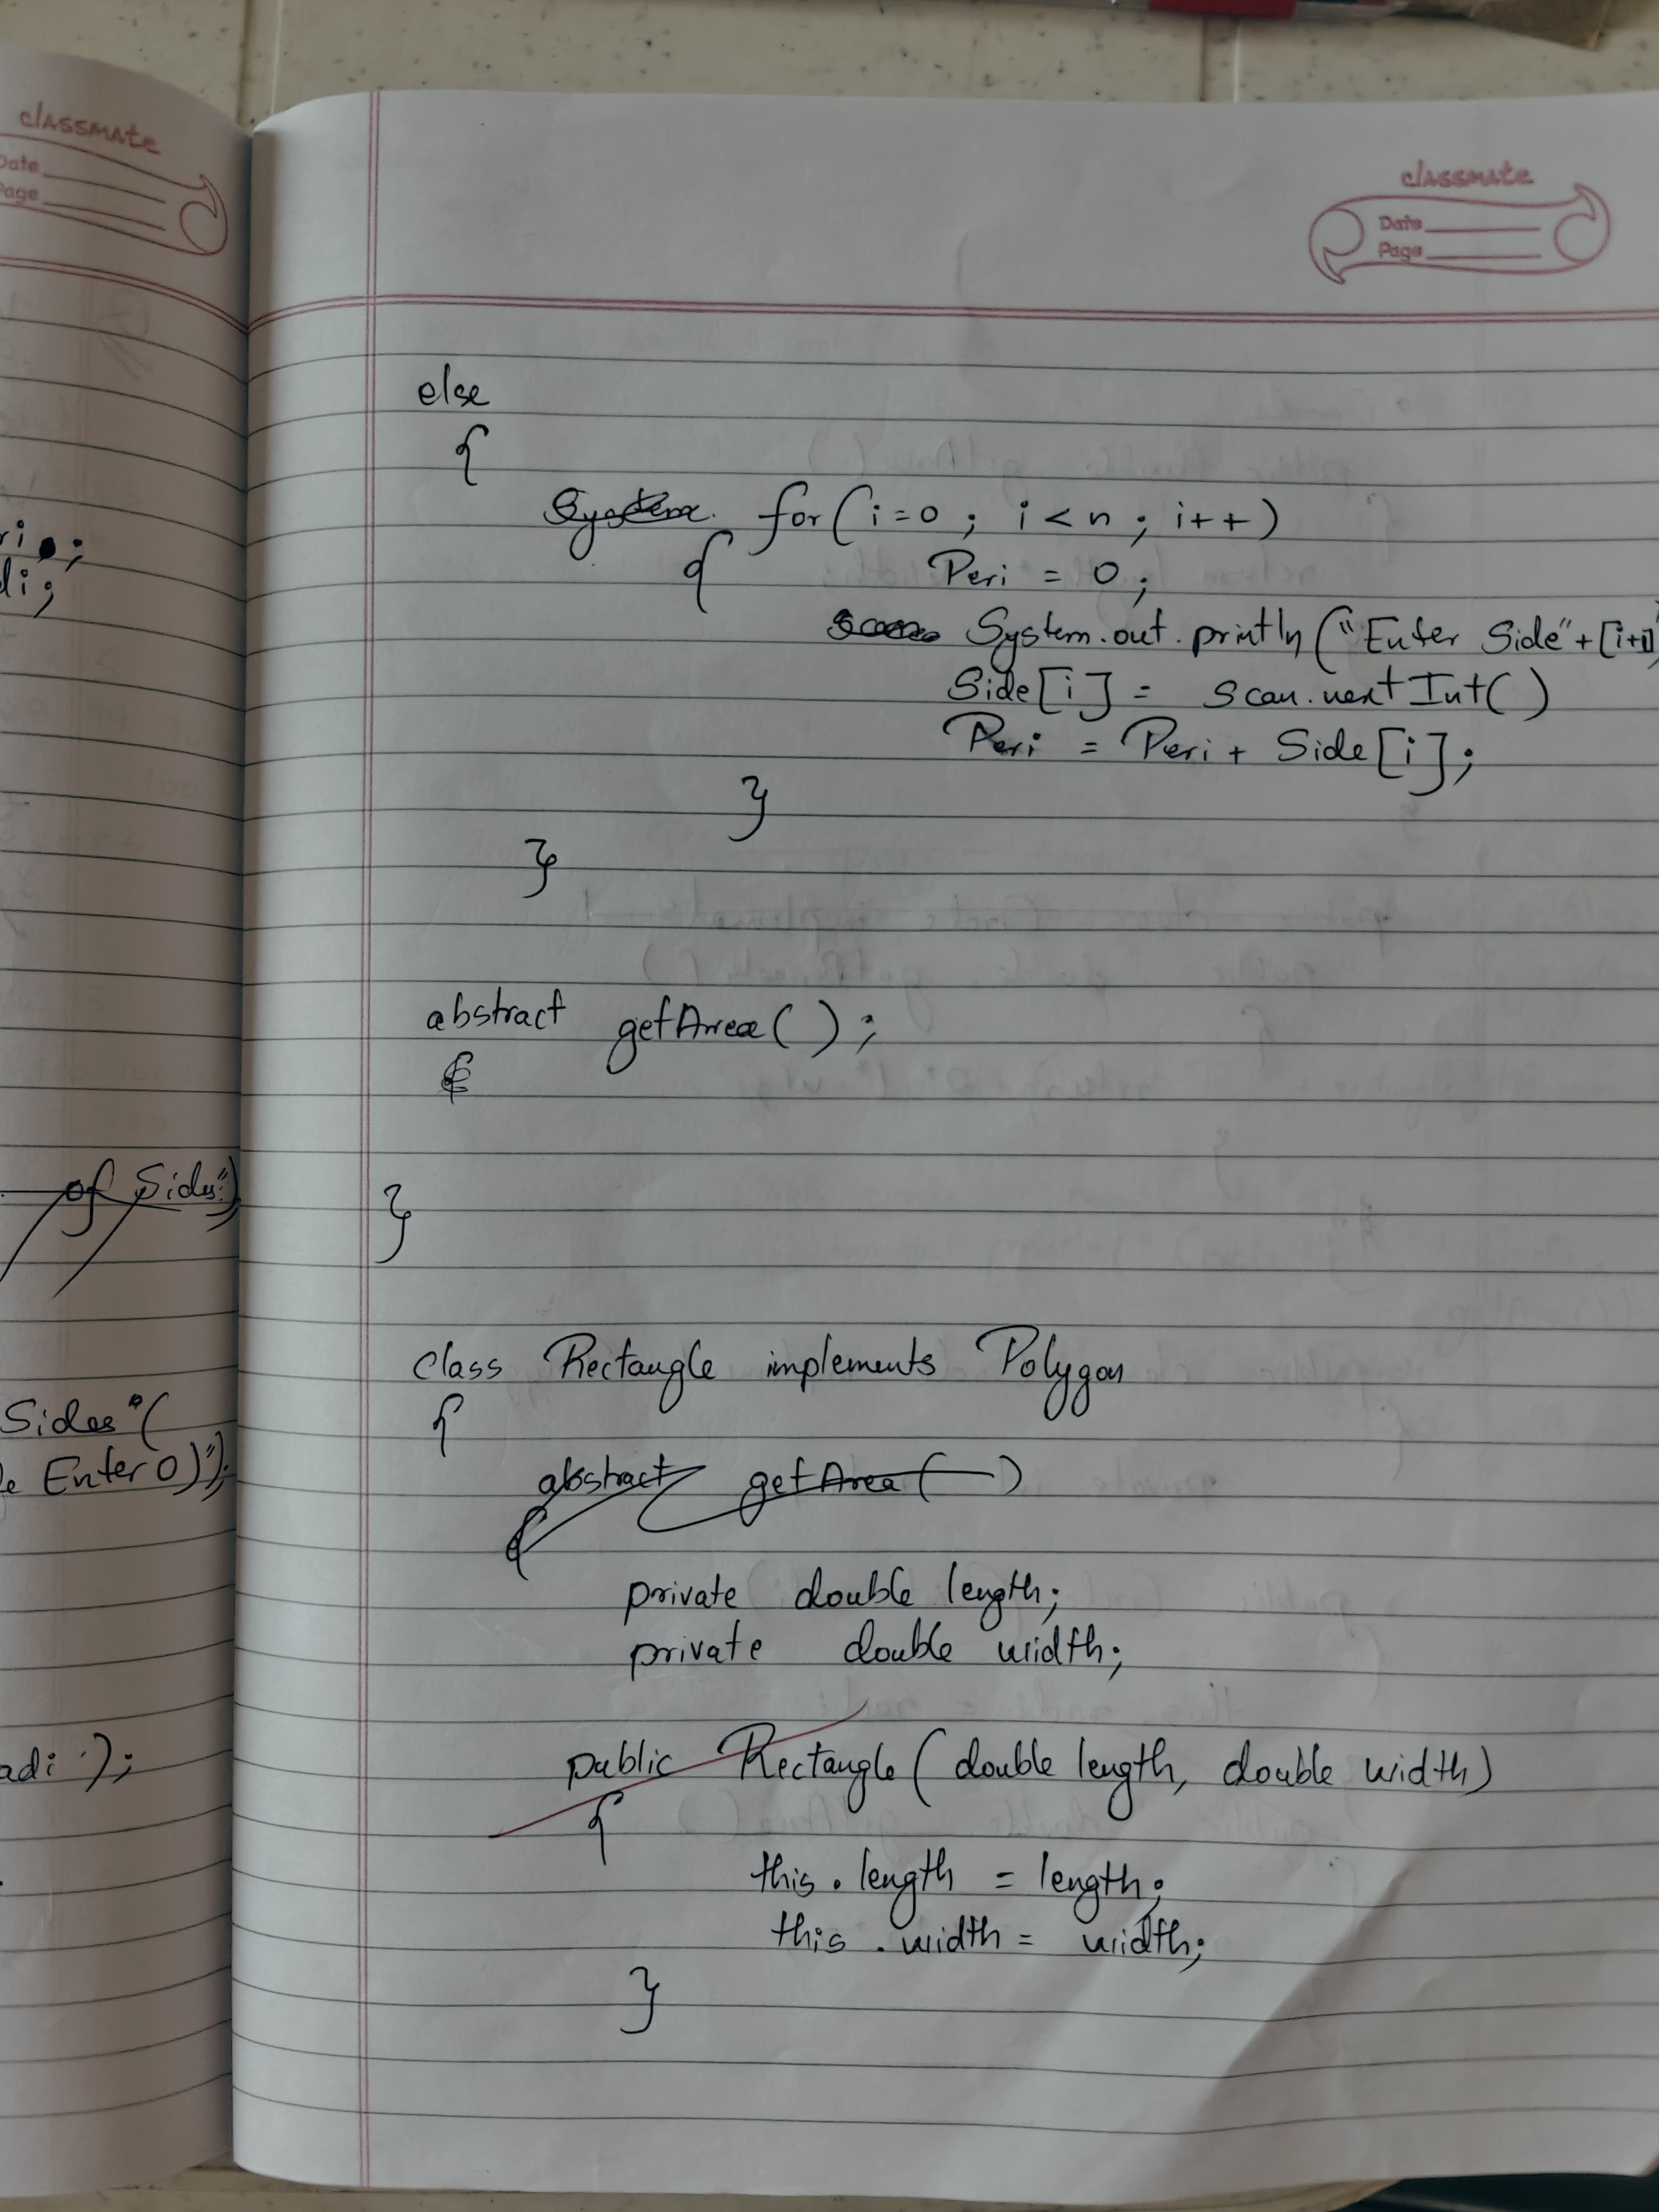 classmate
Date
Page
ri;
di;
of Sides")
Sides"(
Enter 0)");
adi ');
classmate
Date
Page
else
{
System. for(i=0 ; i<n ; i++)
{ Peri = 0;
System.out.println("Enter Side"+[i+1]
Side[i] = scan.nextInt()
Peri = Peri + Side[i];
}
}
abstract getArea();
{
}
class Rectangle implements Polygon
{
abstract getArea( )
{
private double length;
private double width;
public Rectangle(double length, double width)
{
this.length = length;
this.width = width;
}